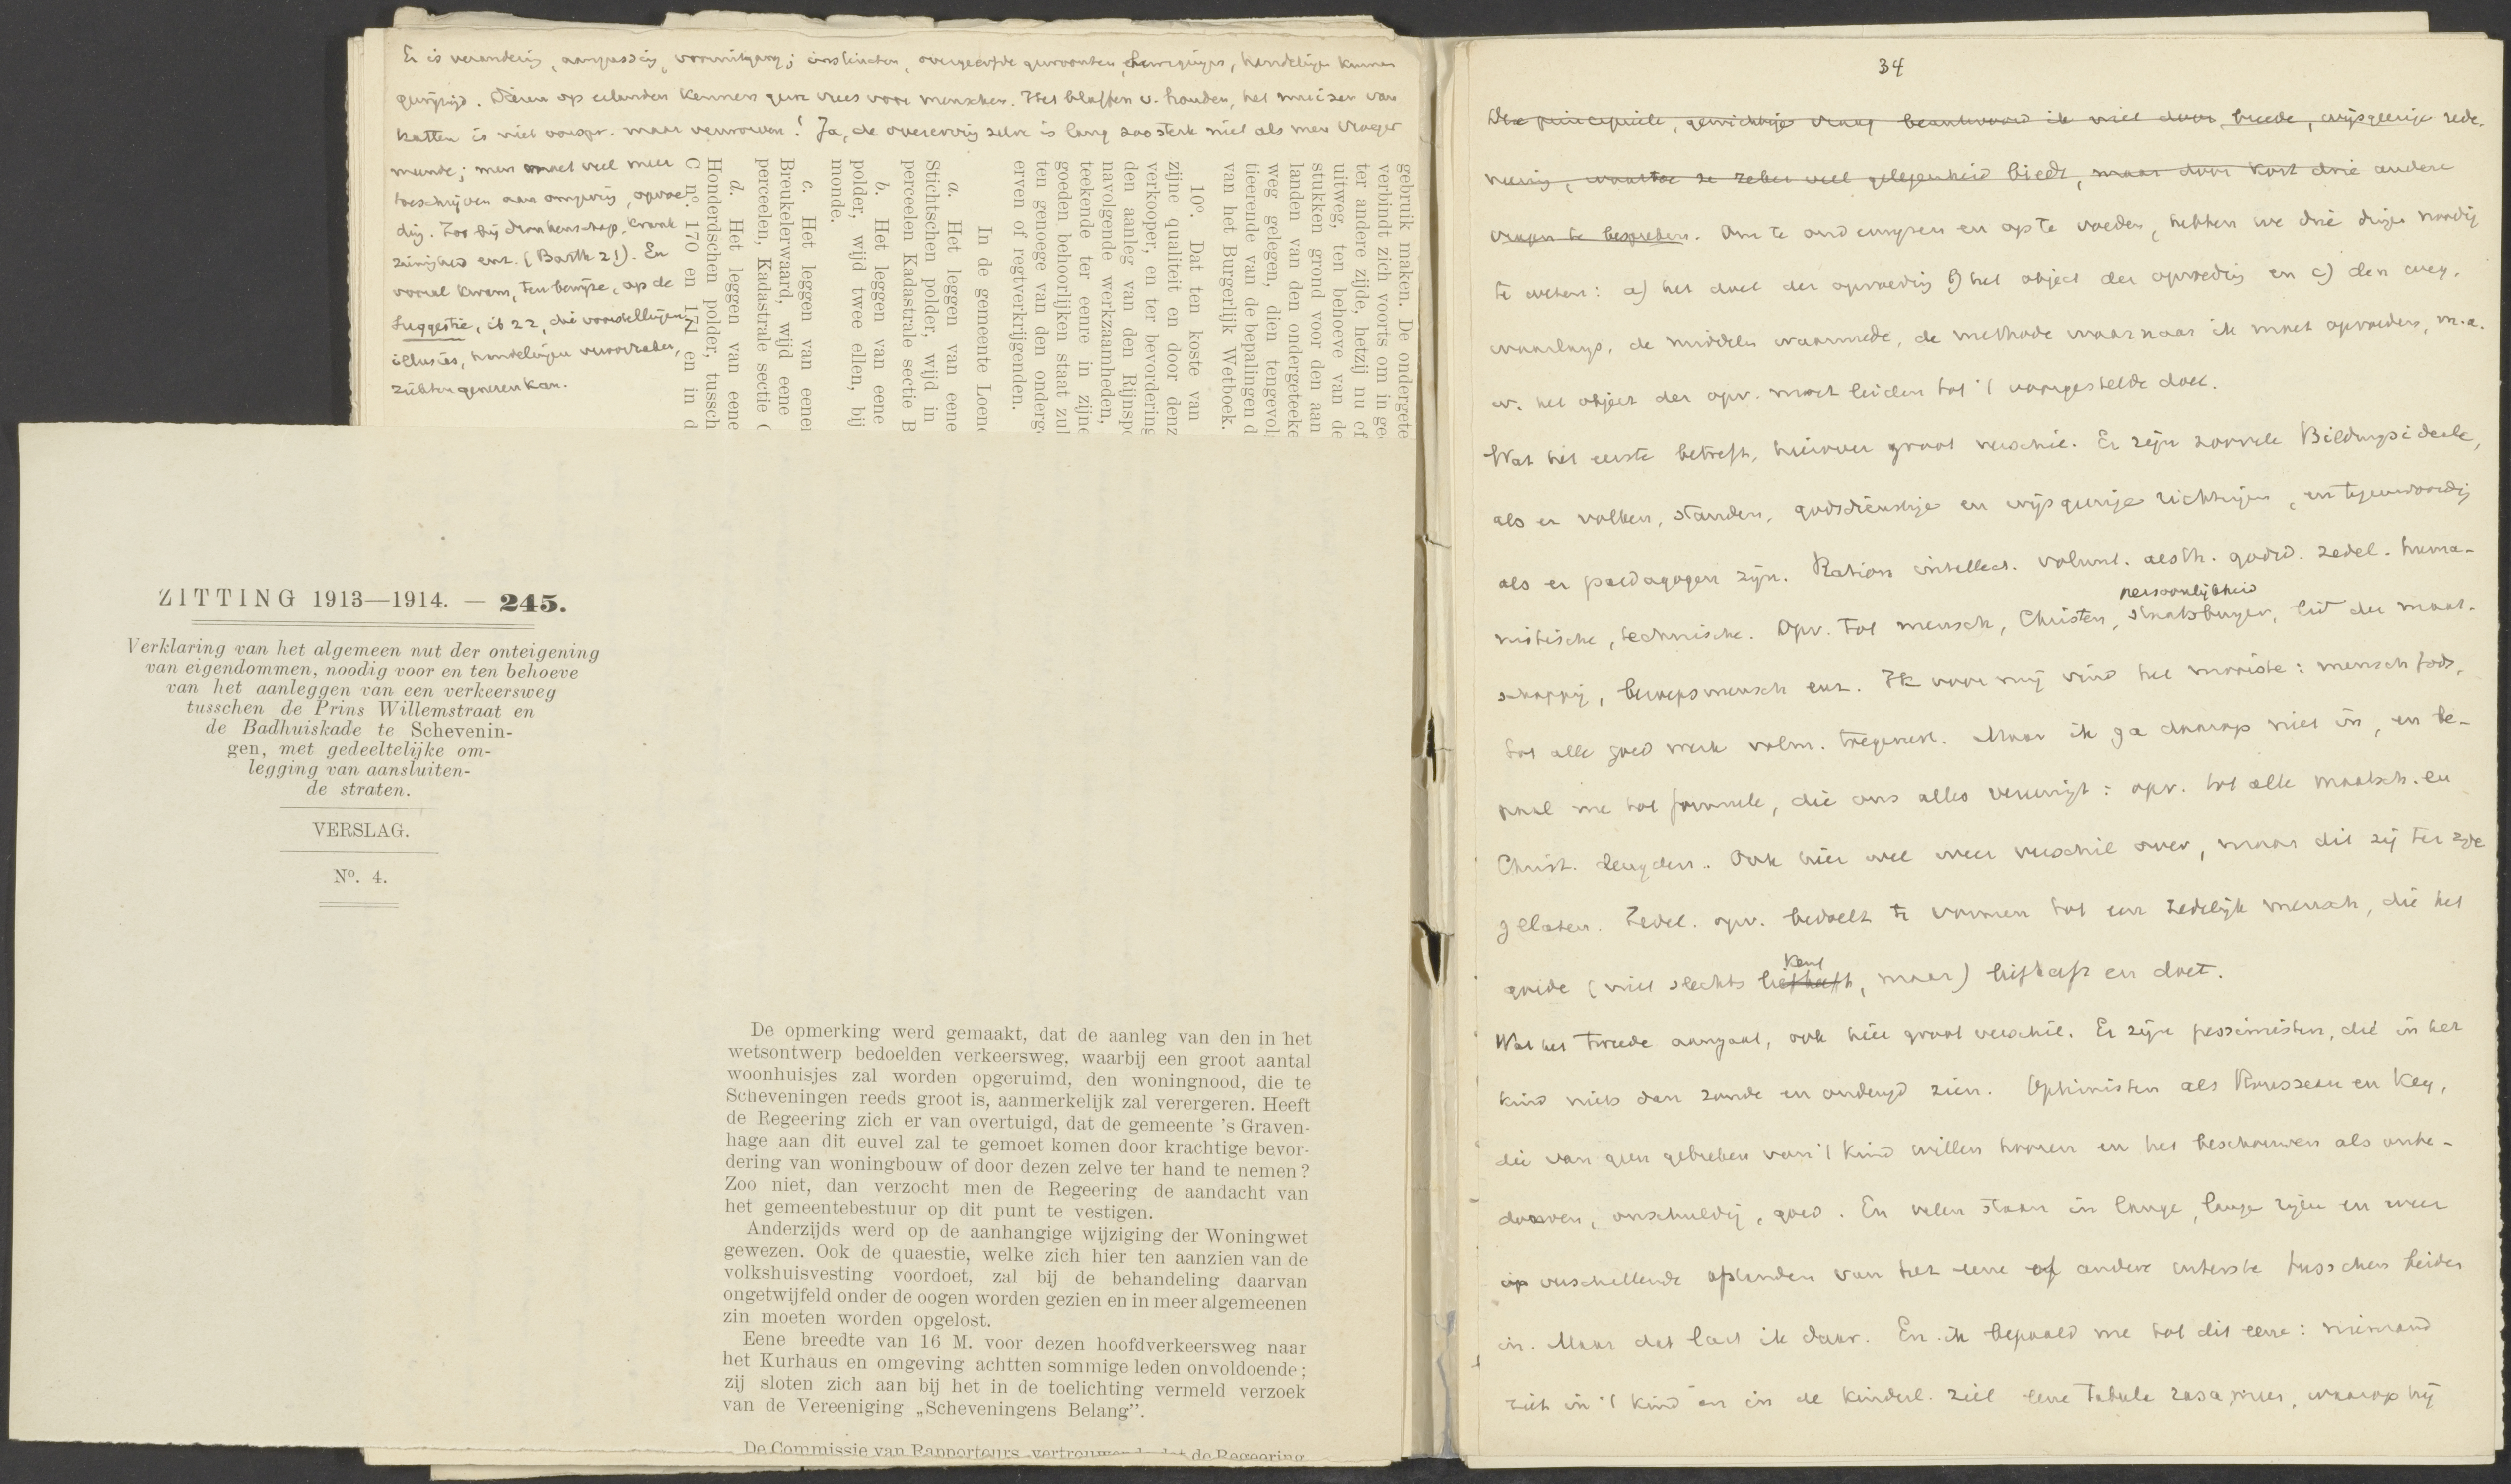 Er is verandering, aanpassing, vooruitgang; instincten, overgeërfde gewoonten, bewegingen, handelingen kunnen
gewijzigd. Dieren op eilanden kennen geen vrees voor menschen. Het blaffen v. honden, het muizen van
katten is niet oorspr. maar verworven! Ja, de overerving zelve is lang zoo sterk niet als men vroeger
meende; men moet veel meer
toeschrijven aan omgeving, opvoe-
ding. Zoo bij dronkenschap, krank-
zinnigheid enz. (Barth 21). En
vooral kwam, ten bewijze, op de
Suggestie, ib 22, die voorstellingen,
illusies, handelingen veroorzaken,
ziekten genezen kan.
gebruik maken. De ondergete
verbindt zich voorts om in ge
ter andere zijde, hetzij nu of
uitweg, ten behoeve van de
stukken grond voor den aan
landen van den ondergeteeke
weg gelegen, dien tengevol
tieerende van de bepalingen d
van het Burgerlijk Wetboek.
10º. Dat ten koste van
zijne qualiteit en door denz
verkooper, en ter bevordering
den aanleg van den Rijnspo
navolgende werkzaamheden,
teekende ter eenre in zijne
goeden behoorlijken staat zul
ten genoege van den onderge
erven of regtverkrijgenden.
In de gemeente Loene
a. Het leggen van eene
Stichtschen polder, wijd in
perceelen Kadastrale sectie B
b. Het leggen van eene
polder, wijd twee ellen, bij
monde.
c. Het leggen van eene
Breukelerwaard, wijd eene
perceelen, Kadastrale sectie C
d. Het leggen van eene
Honderdschen polder, tussch
C nº. 170 en 171 en in d
ZITTING 1913—1914. — 245.
Verklaring van het algemeen nut der onteigening
van eigendommen, noodig voor en ten behoeve
van het aanleggen van een verkeersweg
tusschen de Prins Willemstraat en
de Badhuiskade te Schevenin-
gen, met gedeeltelijke om-
legging van aansluiten-
de straten.
VERSLAG.
Nº. 4.
De opmerking werd gemaakt, dat de aanleg van den in het
wetsontwerp bedoelden verkeersweg, waarbij een groot aantal
woonhuisjes zal worden opgeruimd, den woningnood, die te
Scheveningen reeds groot is, aanmerkelijk zal verergeren. Heeft
de Regeering zich er van overtuigd, dat de gemeente 's Graven-
hage aan dit euvel zal te gemoet komen door krachtige bevor-
dering van woningbouw of door dezen zelve ter hand te nemen?
Zoo niet, dan verzocht men de Regeering de aandacht van
het gemeentebestuur op dit punt te vestigen.
Anderzijds werd op de aanhangige wijziging der Woningwet
gewezen. Ook de quaestie, welke zich hier ten aanzien van de
volkshuisvesting voordoet, zal bij de behandeling daarvan
ongetwijfeld onder de oogen worden gezien en in meer algemeenen
zin moeten worden opgelost.
Eene breedte van 16 M. voor dezen hoofdverkeersweg naar
het Kurhaus en omgeving achtten sommige leden onvoldoende;
zij sloten zich aan bij het in de toelichting vermeld verzoek
van de Vereeniging „Scheveningens Belang".
De Commissie van Rapporteurs, vertrouwende dat de Regeering
34
Die principieele, gewichtige vraag beantwoord ik niet door breede, wijsgeerige rede-
neering, waartoe ze zeker veel gelegenheid biedt, maar door kort drie andere
vragen te bespreken. Om te ontwerpen en op te voeden, hebben we drie dingen noodig
te weten: a) het doel der opvoeding b) het object der opvoeding en c) den weg,
waarlangs, de middelen waarmede, de methode waarnaar ik moet opvoeden, m.a.
w. het object der opv. moet leiden tot 't voorgestelde doel.
Wat het eerste betreft, hierover groot verschil. Er zijn zoovele Bildungsideale,
als er volken, standen, godsdienstige en wijsgeerige richtingen, en tegenwoordig
als er paedagogen zijn. Ration. intellect. volunt. aesth. godsd. zedel. huma-
nistische, technische. Opv. tot mensch, Christen, staatsburger, persoonlijkheid lid der maat-
schappij, beroepsmensch enz. Ik voor mij vind het mooiste: mensch Gods,
tot alle goed werk volm. toegerust. Maar ik ga daarop niet in, en be-
paal me tot formule, die ons allen vereenigt: opv. tot alle maatsch. en
Christ. deugden. Ook hier wel weer verschil over, maar dit zij ter zijde
gelaten. Zedel. opv. bedoelt te vormen tot een zedelijk mensch, die het
goede (niet slechts liefheeft kent, maar) liefheeft en doet.
Wat het tweede aangaat, ook hier groot verschil. Er zijn pessimisten, die in het
kind niets dan zonde en ondeugd zien. Optimisten als Rousseau en Key,
die van geen gebreken van 't kind willen hooren en het beschouwen als onbe-
dorven, onschuldig, goed. En velen staan in lange, lange rijen en weer
op verschillende afstanden van het eene of andere uiterste tusschen beiden
in. Maar dat laat ik daar. En ik bepaal me tot dit eene: niemand
ziet in 't kind en in de kinderl. ziel eene tabula rasa meer, waarop hij